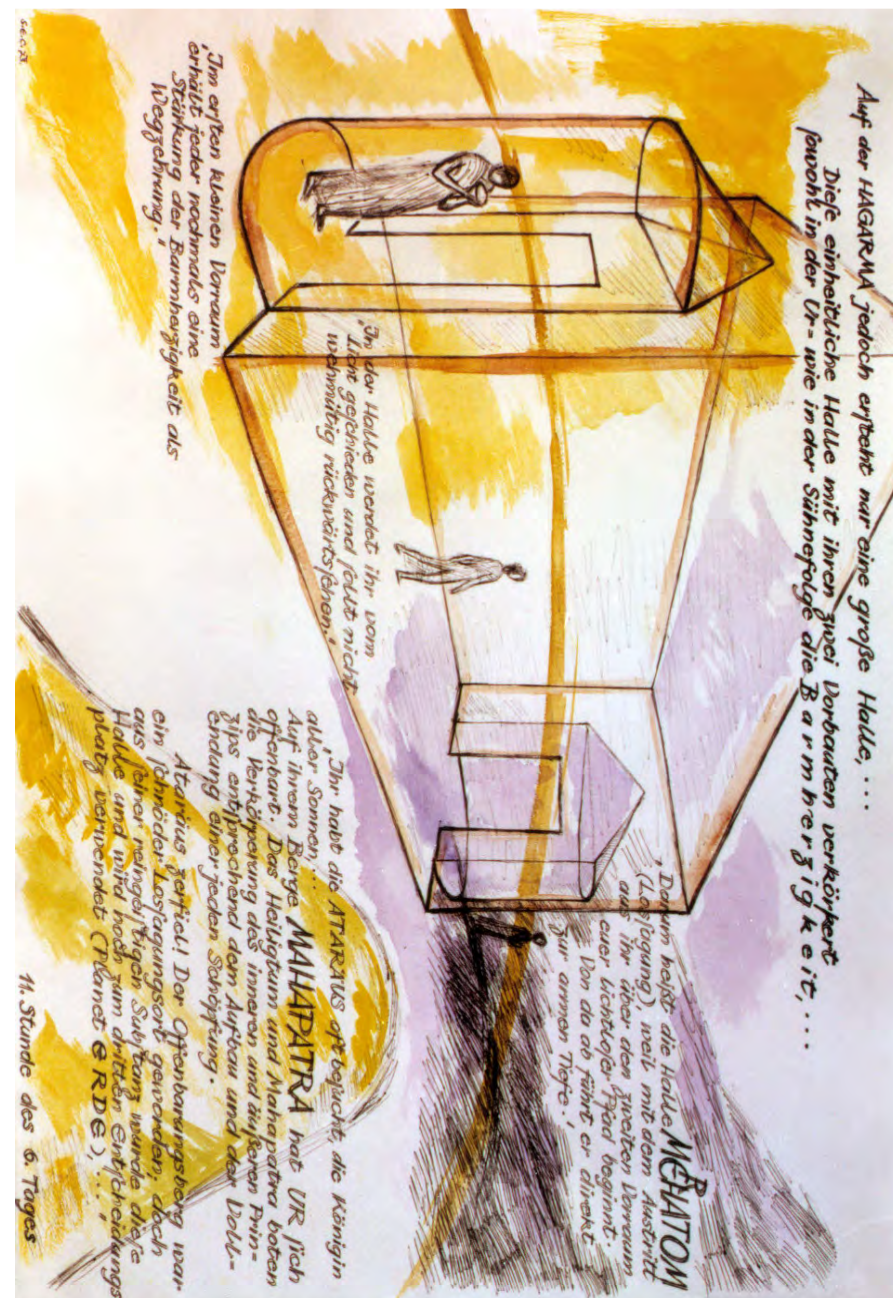 Auf der HAGARMA jedoch ersteht nur eine große Halle, ...
Diese einheitliche Halle mit ihren zwei Vorbauten verkörpert
sowohl in der Ur- wie in der Sühnefolge die Barmherzigkeit, ...
„Im ersten kleinen Vorraum
erhält jeder nochmals eine
Stärkung der Barmherzigkeit als
Wegzehrung."
‚In der Halle werdet ihr vom
Licht geschieden und sollt nicht
wehmütig rückwärtssehen.'
‚Darum heißt die Halle MEHATOM
(Lossagung), weil mit dem Austritt
aus ihr über den zweiten Vorraum
euer lichtloser Pfad beginnt.
Von da ab führt er direkt
zur armen Tiefe.'
‚Ihr habt die ATARIUS oft besucht, die Königin
aller Sonnen, ...
Auf ihrem Berge MAHAPATRA hat UR sich
offenbart. Das Heiligtum und Mahapatra boten
die Verkörperung des inneren und äußeren Prin-
zips entsprechend dem Aufbau und der Voll-
endung einer jeden Schöpfung.
Atarius zerfiel! Der Offenbarungsberg war
ein schnöder Lossagungsort geworden, doch
aus seiner reingeistigen Substanz wurde diese
Halle und wird noch zum dritten Entscheidungs
platz verwendet (Planet ERDE), ...'
11. Stunde des 6. Tages